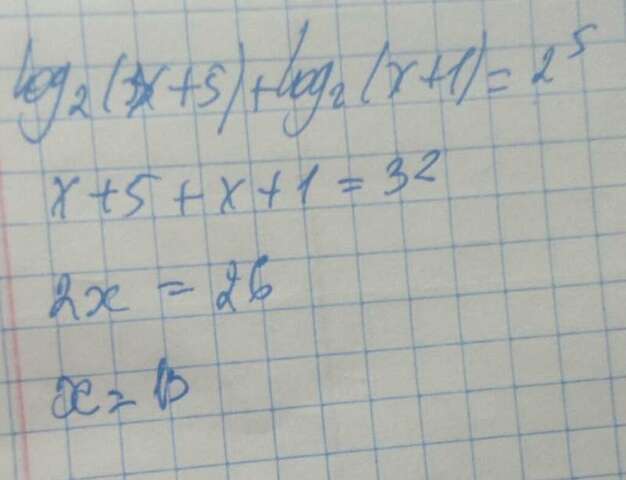 log₂(x+5)+log₂(x+1)=2⁵
x+5+x+1=32
2x=26
x=13